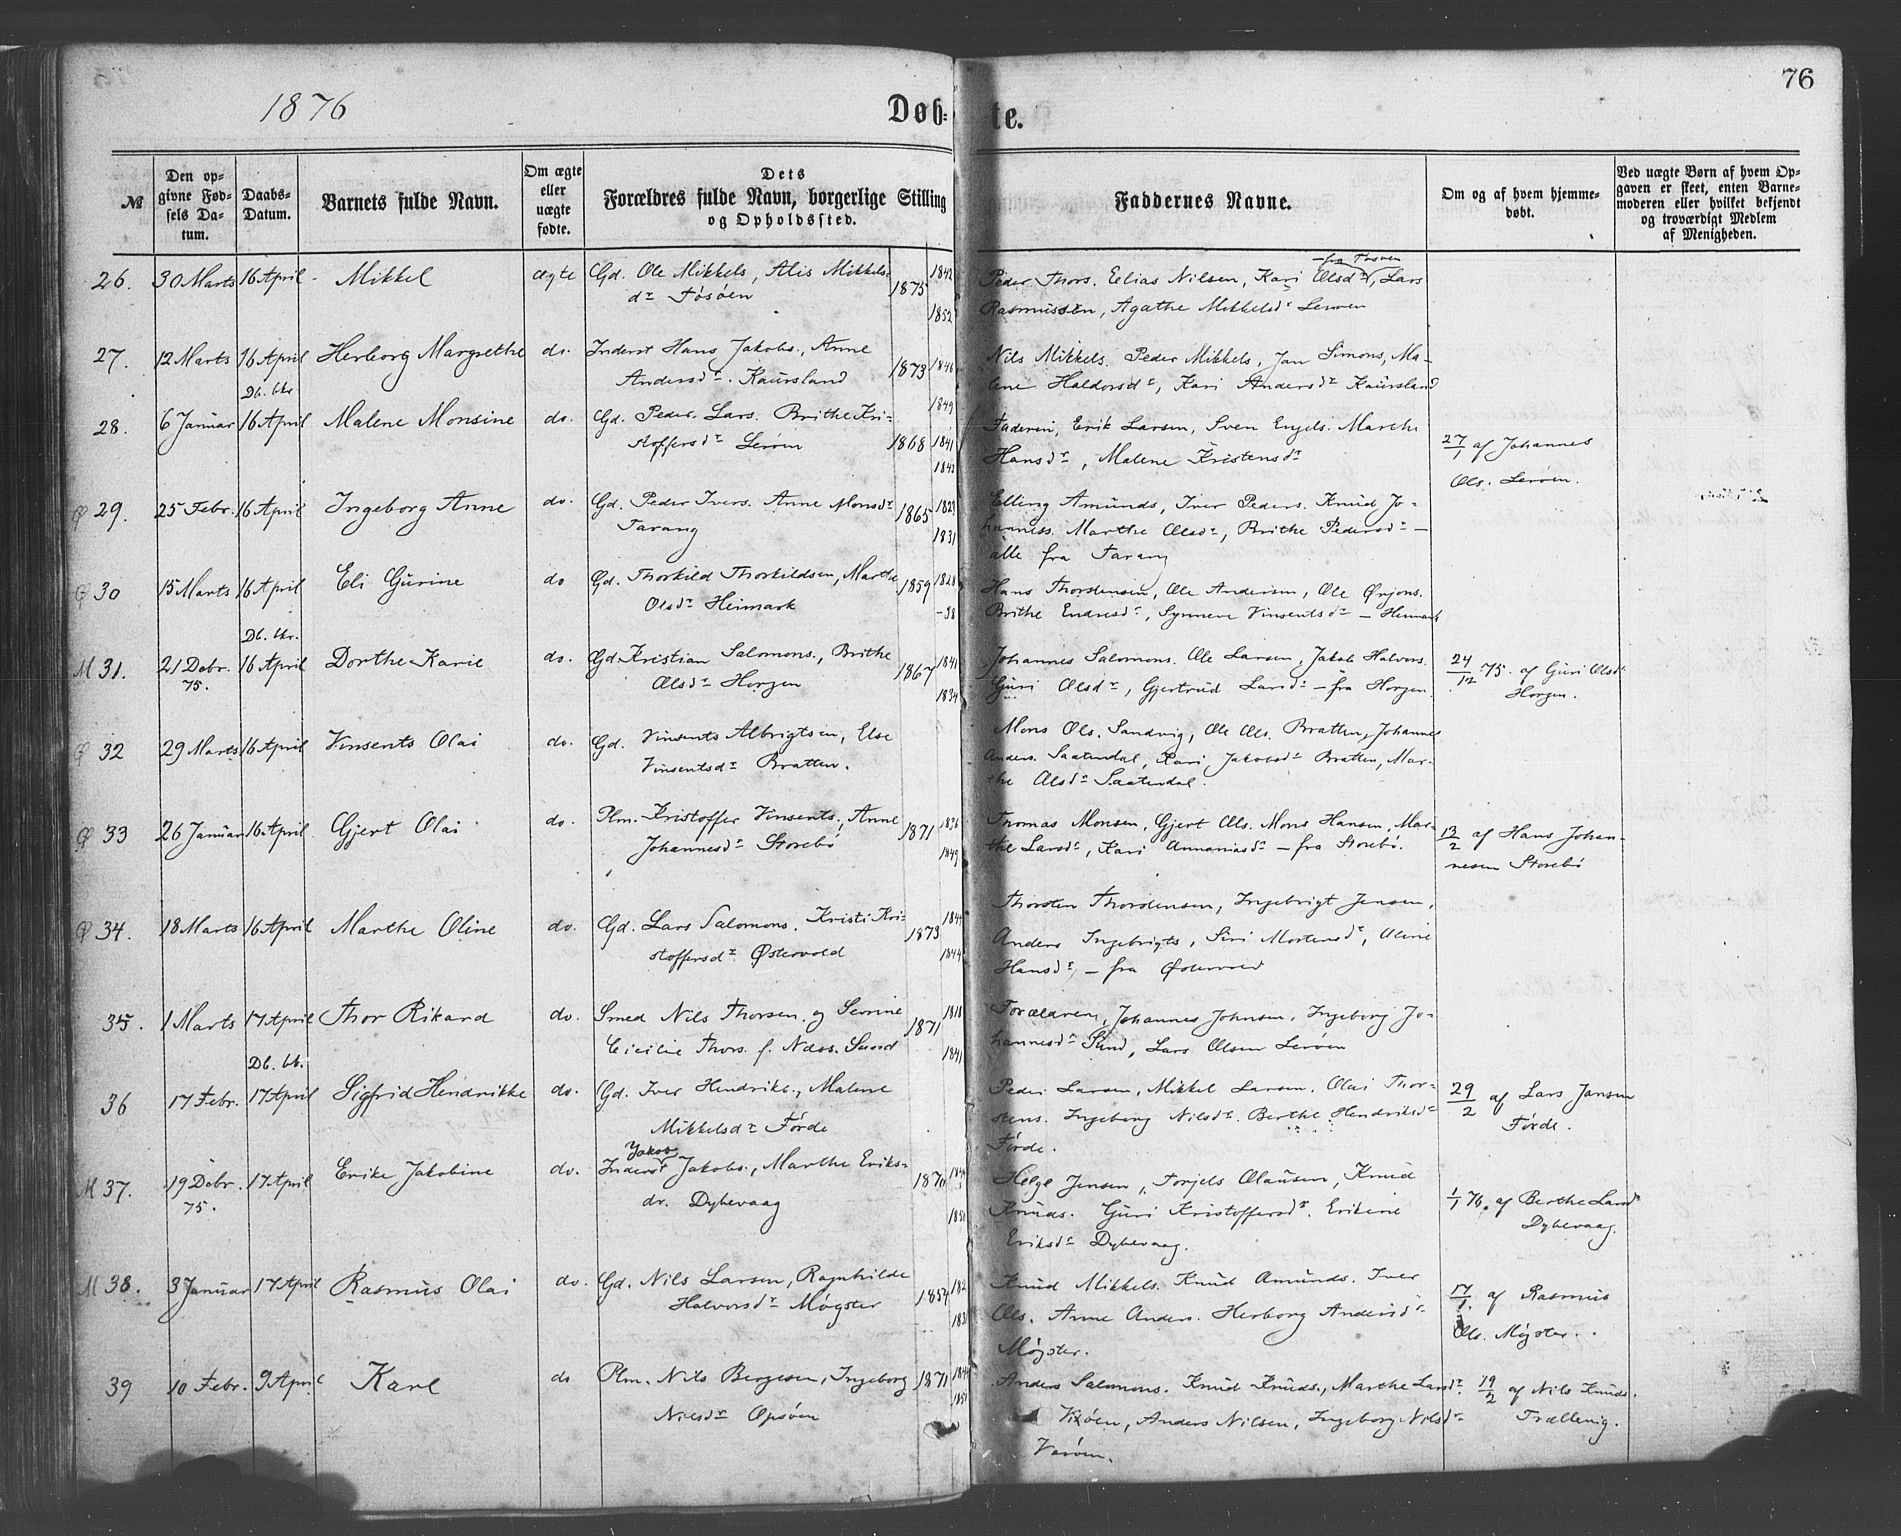 76
1876
Døb-te.
№
Den op-
givne Fød-
sels Da-
tum.
Daabs-
Datum.
Barnets fulde Navn.
Om ægte
eller
uægte
fødte.
Dets
Forældres fulde Navn, borgerlige Stilling
og Opholdssted.
Faddernes Navne.
Om og af hvem hjemme-
døbt.
Ved uægte Børn af hvem Op-
gaven er skeet, enten Barne-
moderen eller hvilket bekjendt
og troværdigt Medlem
af Menigheden.
26. 30 Marts 16 April Mikkel ægte Gd. Ole Mikkels, Alis Mikkels- 1875 1842
dr Tøsøen 1852
fra Tøsøen
Peder Thors. Eelias Nilsen, Kari Olsdr, Lars
Rasmussen, Agathe Mikkelsdr Lerøen
27. 12 Marts 16 April Herborg Margrethe do. Inderst Hans Jakobs., Anne 1873 1846
Andersdr. Kaursland 1849
Nils Mikkels. Peder Mikkels, Jan Simons, Ma-
lene Haldorsdr, Kari Andersdr Kaursland
Db. bkr.
28. 6 Januar 16 April Malene Monsine do. Gd. Peder Lars. Brithe Kri- 1868 1841
stoffersdr Lerøen
Faderen, Erik Larsen, Sven Engels. Marthe
Hansdr, Malene Kristensdr
27/1 af Johannes
Ols. Lerøen.
29. 25 Febr. 16 April Ingeborg Anne do. Gd. Peder Ivers. Anne Monsdr 1865 1829
Tarang 1831
Elling Amunds, Iver Peders. Knud Jo-
hanness. Marthe Olsdr, Brithe Pedersdr —
alle fra Tarang
30 15 Marts 16 April Eli Gurine do Gd. Thorkild Thorkildsen, Marthe 1859 1828
Olsdr Heimark -38
Hans Thorstensen, Ole Andersen, Ole Ørjons.
Brithe Endresdr, Synneve Vinsentsdr — Heimark
Db. bkr.
M 31. 21 Debr. 75. 16 April Dorthe Karie do. Gd. Kristian Salomons., Brithe 1867 1841
Olsdr Horgen 1834
Johannes Salomons. Ole Larsen, Jakob Halvors.
Guri Olsdr, Gjertrud Larsdr — fra Horgen.
24/12 75. af Guri Olsdr
Horgen.
32 29 Marts 16 April Vinsents Olai do. Gd. Vinsents Albrigtsen, Else
Vinsentsdr Bratten.
Mons Ols. Sandvig, Ole Ols. Bratten, Johannes
Anders. Saatendal, Kari Jakobsdr Bratten, Mar-
the Olsdr Saatendal.
33 26 Januar 16 April Gjert Olai do. Plm. Kristoffer Vinsents., Anne 1871 1836
Johannesdr Storebø 1849
Thomas Monsen, Gjert Ols. Mons Hansen, Mar-
the Larsdr, Kari Annaniasdr — fra Storebø.
13/2 af Hans Johan-
nesen Storebø
34. 18 Marts 16 April Marthe Oline do. Gd. Lars Salomons. Kristi Kri- 1873
stoffersdr Østervold 1844
Thorsten Thorstensen, Ingebrigt Jensen,
Anders Ingebrigts, Siri Mortensdr, Oline
Hansdr, — fra Østervold
35. 1 Marts 17 April Thor Rikard do. Smed Nils Thorsen og Severine 1871 1818
Cicilie Thors. f. Næss. Sund 1841
Forældrene, Johannes Johnsen, Ingeborg Jo-
hannesdr Sund, Lars Olsen Lerøen
Db. bk.
36 17 Febr. 17 April Sigfrid Hendrikke do. Gd. Iver Hendriks., Malene
Mikkelsdr Førde
Peder Larsen, Mikkel Larsen. Olai Thor-
stens. Ingeborg Nilsdr. Berthe Hendriksdr
Førde.
29/2 af Lars Jansen
Førde.
M 37. 19 Debr. 75. 17 April Erike Jakobine do. Inderst Jakob Jakobs., Marthe Eriks-
dr. Dybevaag
Helge Jensen, Torjels Olausen, Knud
Knuds. Guri Kristoffersdr. Erikine
Eriksdr Dybevaag.
1/1 76. af Berthe Larsdr
Dybevaag.
M 38. 3 Januar 17 April Rasmus Olai do. Gd. Nils Larsen, Ragnhilde 1854
Halvorsdr Møgster
Knud Mikkels. Knud Amunds. Iver
Ols. Anne Anders. Herborg Andersdr
Møgster.
17/1. af Rasmus
Ols. Møgster.
39 10 Febr. 9 April Karl do Plm. Nils Bergesen, Ingeborg 1871
Nilsdr Opsøen
Anders Salomons. Knud Knuds., Marthe Larsdr.
Vixøen, Anders Nilsen, Ingeborg Nilsdr
Varøen.
19/2 af Nils Knuds.
Trællevig.